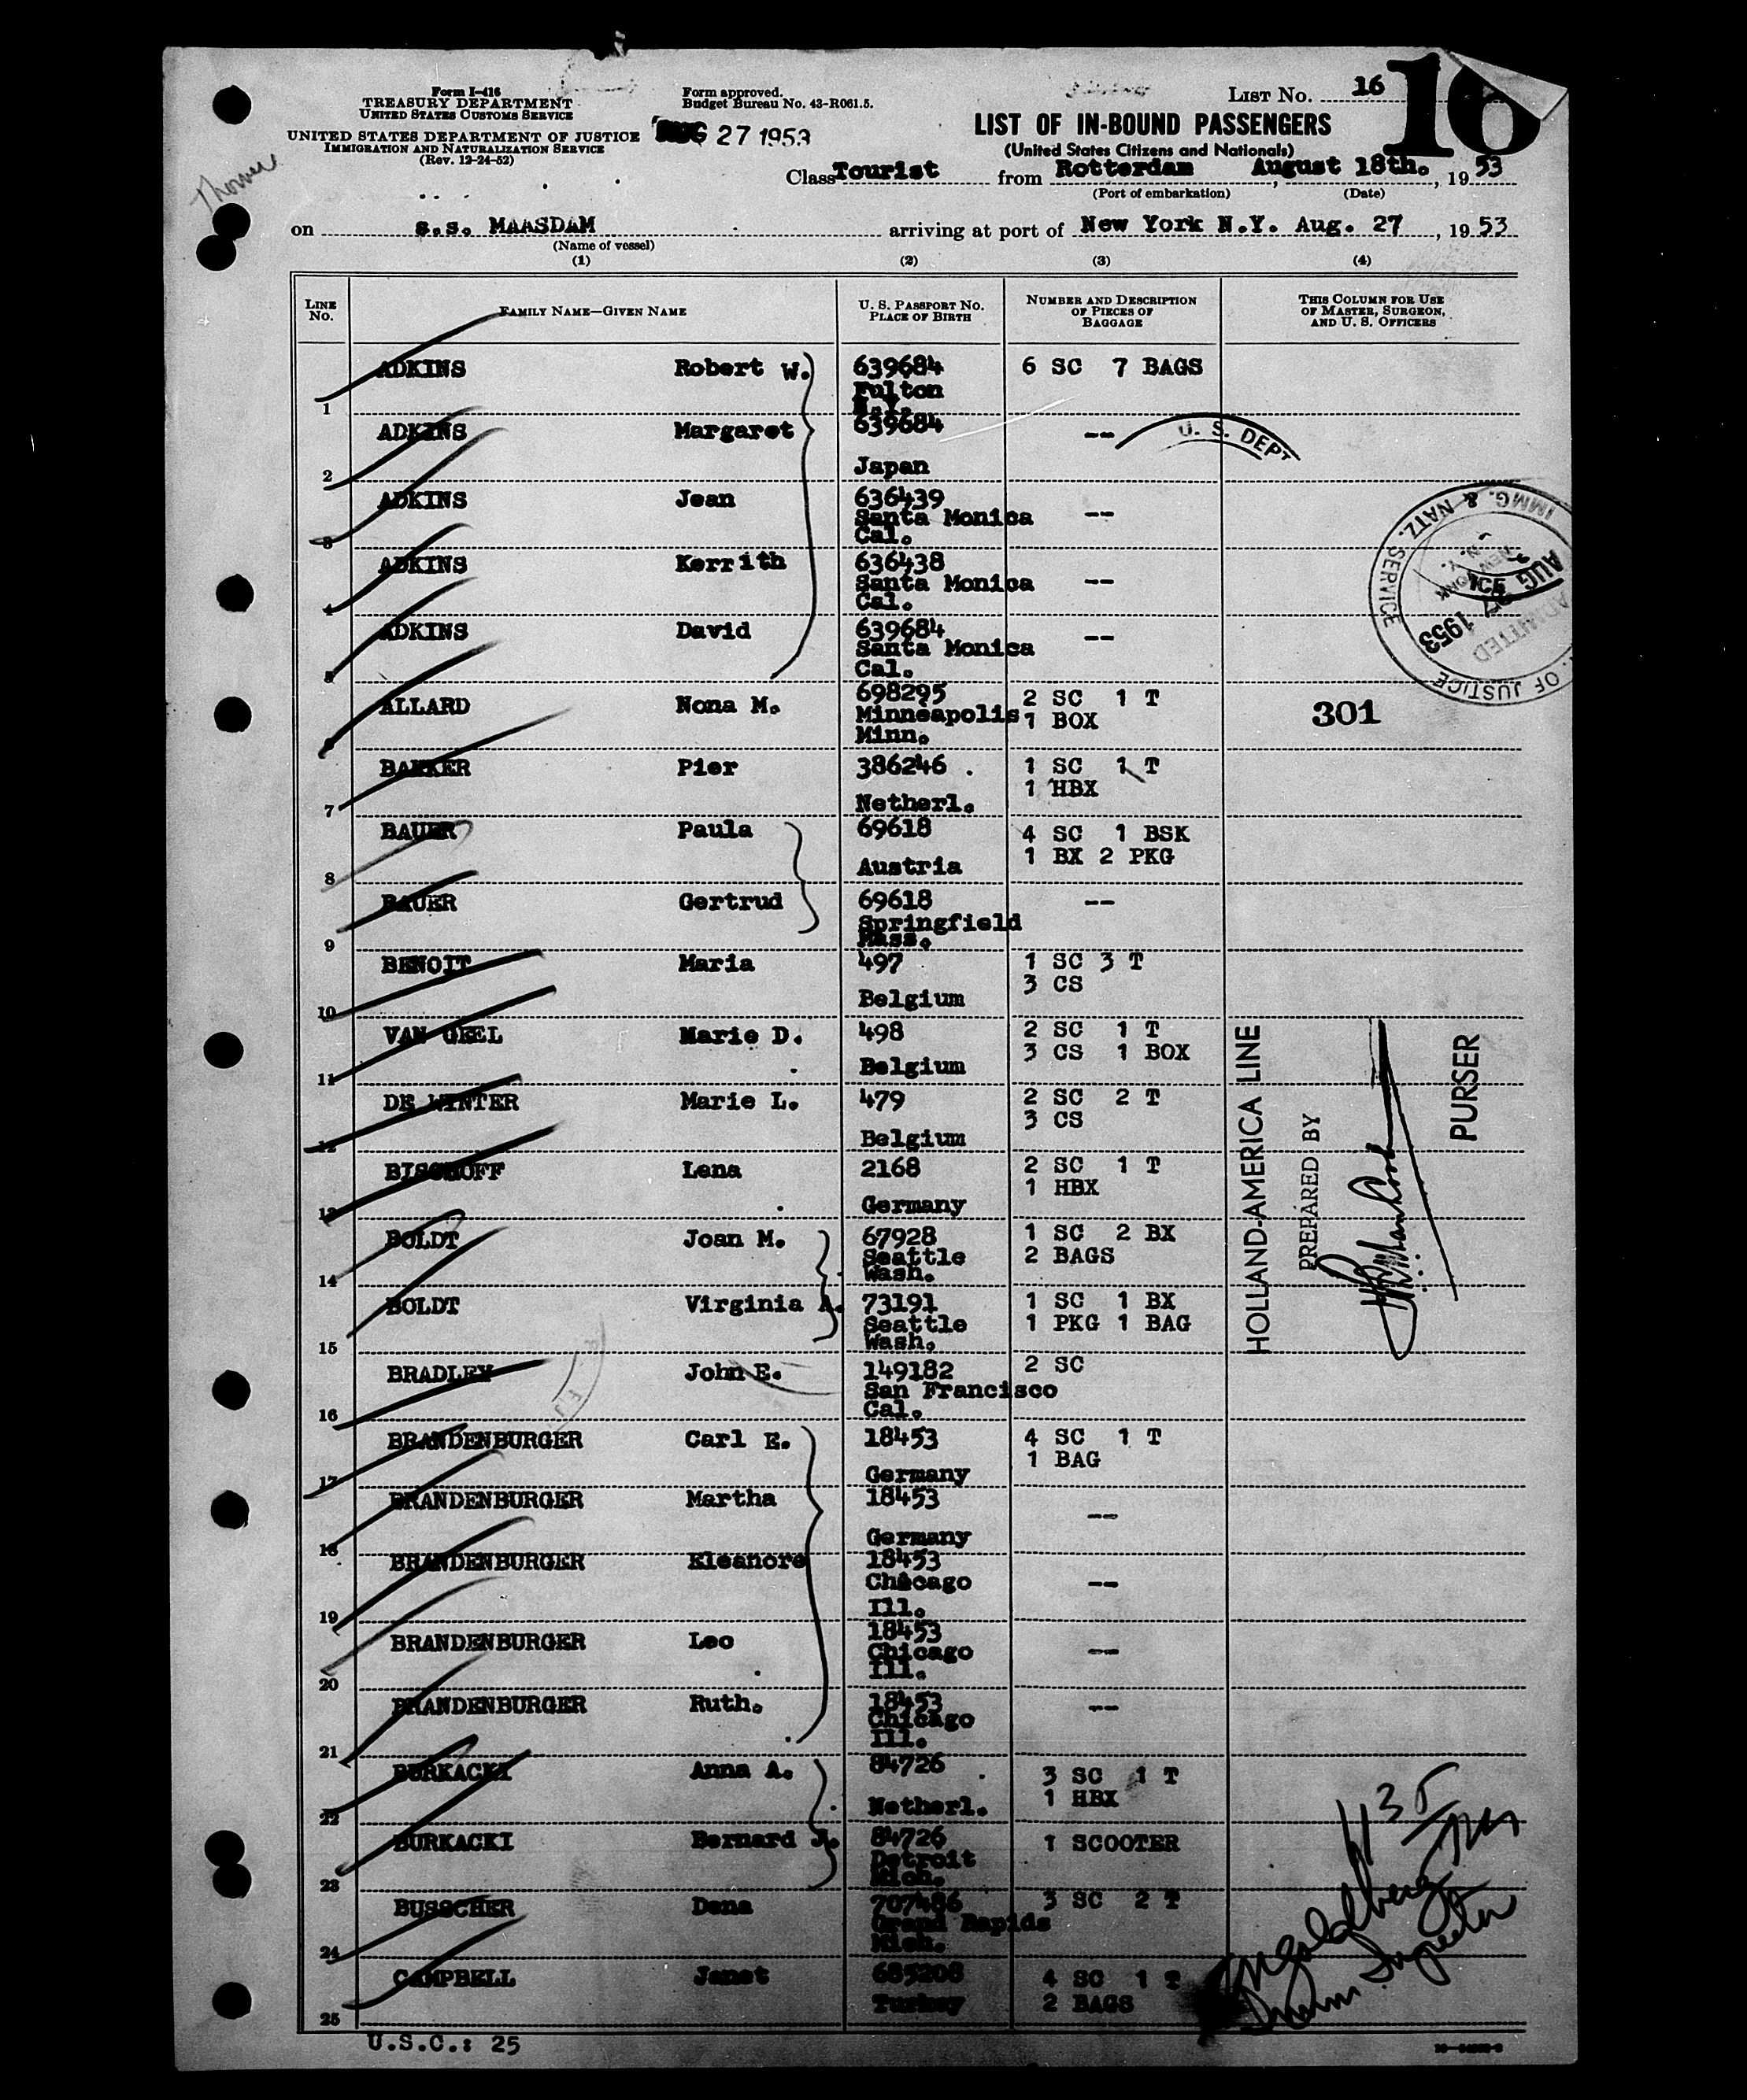 Form I-416
TREASURY DEPARTMENT
UNITED STATES CUSTOMS SERVICE
UNITED STATES DEPARTMENT OF JUSTICE
IMMIGRATION AND NATURALIZATION SERVICE
(Rev. 12-24-52)
Form approved.
Budget Bureau No. 43-R061.5.
AUG 27 1953
LIST NO. 16
16
LIST OF IN-BOUND PASSENGERS
(United States Citizens and Nationals)
Class Tourist from Rotterdam, August 18th., 1953
(Port of embarkation) (Date)
on s.s. MAASDAM arriving at port of New York N.Y. Aug. 27, 1953
(Name of vessel)
(1) (2) (3) (4)
LINE NO. FAMILY NAME—GIVEN NAME U. S. PASSPORT NO. PLACE OF BIRTH NUMBER AND DESCRIPTION OF PIECES OF BAGGAGE THIS COLUMN FOR USE OF MASTER, SURGEON, AND U. S. OFFICERS
1 ADKINS Robert W. 639684 Fulton N.Y. 6 SC 7 BAGS
2 ADKINS Margaret 639684 Japan --
3 ADKINS Jean 636439 Santa Monica Cal. --
4 ADKINS Kerrith 636438 Santa Monica Cal. --
5 ADKINS David 639684 Santa Monica Cal. --
6 ALLARD Nona M. 698295 Minneapolis Minn. 2 SC 1 T 1 BOX 301
7 BAKKER Pier 386246 Netherl. 1 SC 1 T 1 HBX
8 BAUER Paula 69618 Austria 4 SC 1 BSK 1 BX 2 PKG
9 BAUER Gertrud 69618 Springfield Mass. --
10 BENOIT Maria 497 Belgium 1 SC 3 T 3 CS
11 VAN GEEL Marie D. 498 Belgium 2 SC 1 T 3 CS 1 BOX
12 DE WINTER Marie L. 479 Belgium 2 SC 2 T 3 CS
13 BISCHOFF Lena 2168 Germany 2 SC 1 T 1 HBX
14 BOLDT Joan M. 67928 Seattle Wash. 1 SC 2 BX 2 BAGS
15 BOLDT Virginia A. 73191 Seattle Wash. 1 SC 1 BX 1 PKG 1 BAG
16 BRADLEY John E. 149182 San Francisco Cal. 2 SC
17 BRANDENBURGER Carl E. 18453 Germany 4 SC 1 T 1 BAG
18 BRANDENBURGER Martha 18453 Germany --
19 BRANDENBURGER Eleanore 18453 Chicago Ill. --
20 BRANDENBURGER Leo 18453 Chicago Ill. --
21 BRANDENBURGER Ruth. 18453 Chicago Ill. --
22 BURKACKI Anna A. 84726 Netherl. 3 SC 1 T 1 HBX
23 BURKACKI Bernard J. 84726 Detroit Mich. 1 SCOOTER
24 BUSSCHER Dena 707486 Grand Rapids Mich. 3 SC 2 T
25 CAMPBELL Janet 685208 Turkey 4 SC 1 T 2 BAGS
U.S.C.: 25
U. S. DEPT
OF JUSTICE
IMMG. & NATZ. SERVICE
NEW YORK
ADMITTED
AUG 27 1953
HOLLAND-AMERICA LINE
PREPARED BY
PURSER
Goldberg
Inspector